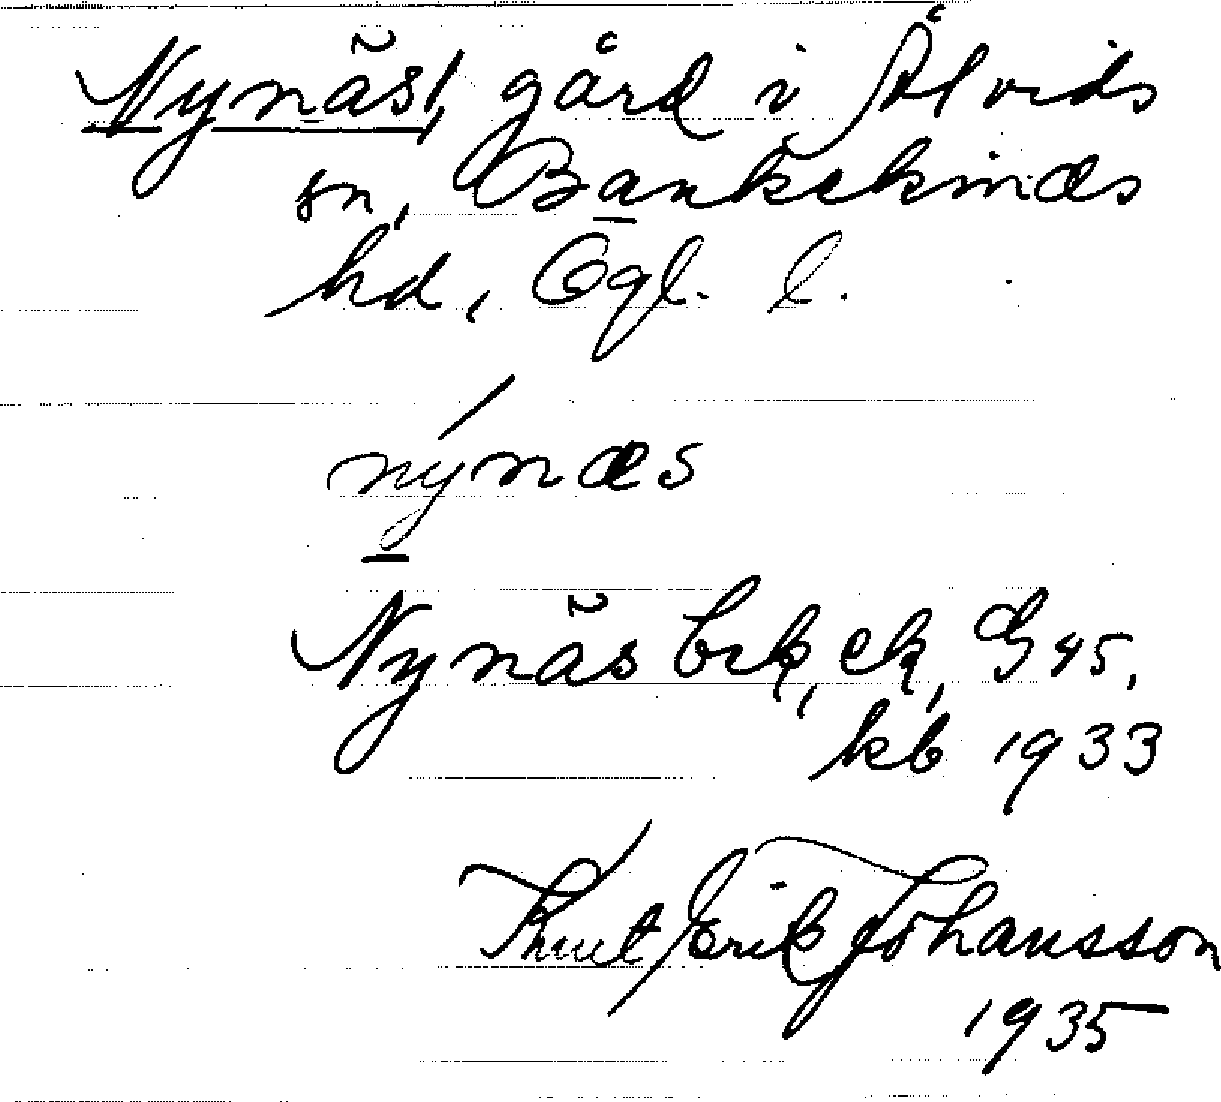 Nynäs, gård i Ålvids
sn, Bankekinds
hd, Ögl. l.
nýnæs
Nynäs bek, ek, G 45,
kb 1933
Knut Erik Johansson
1935